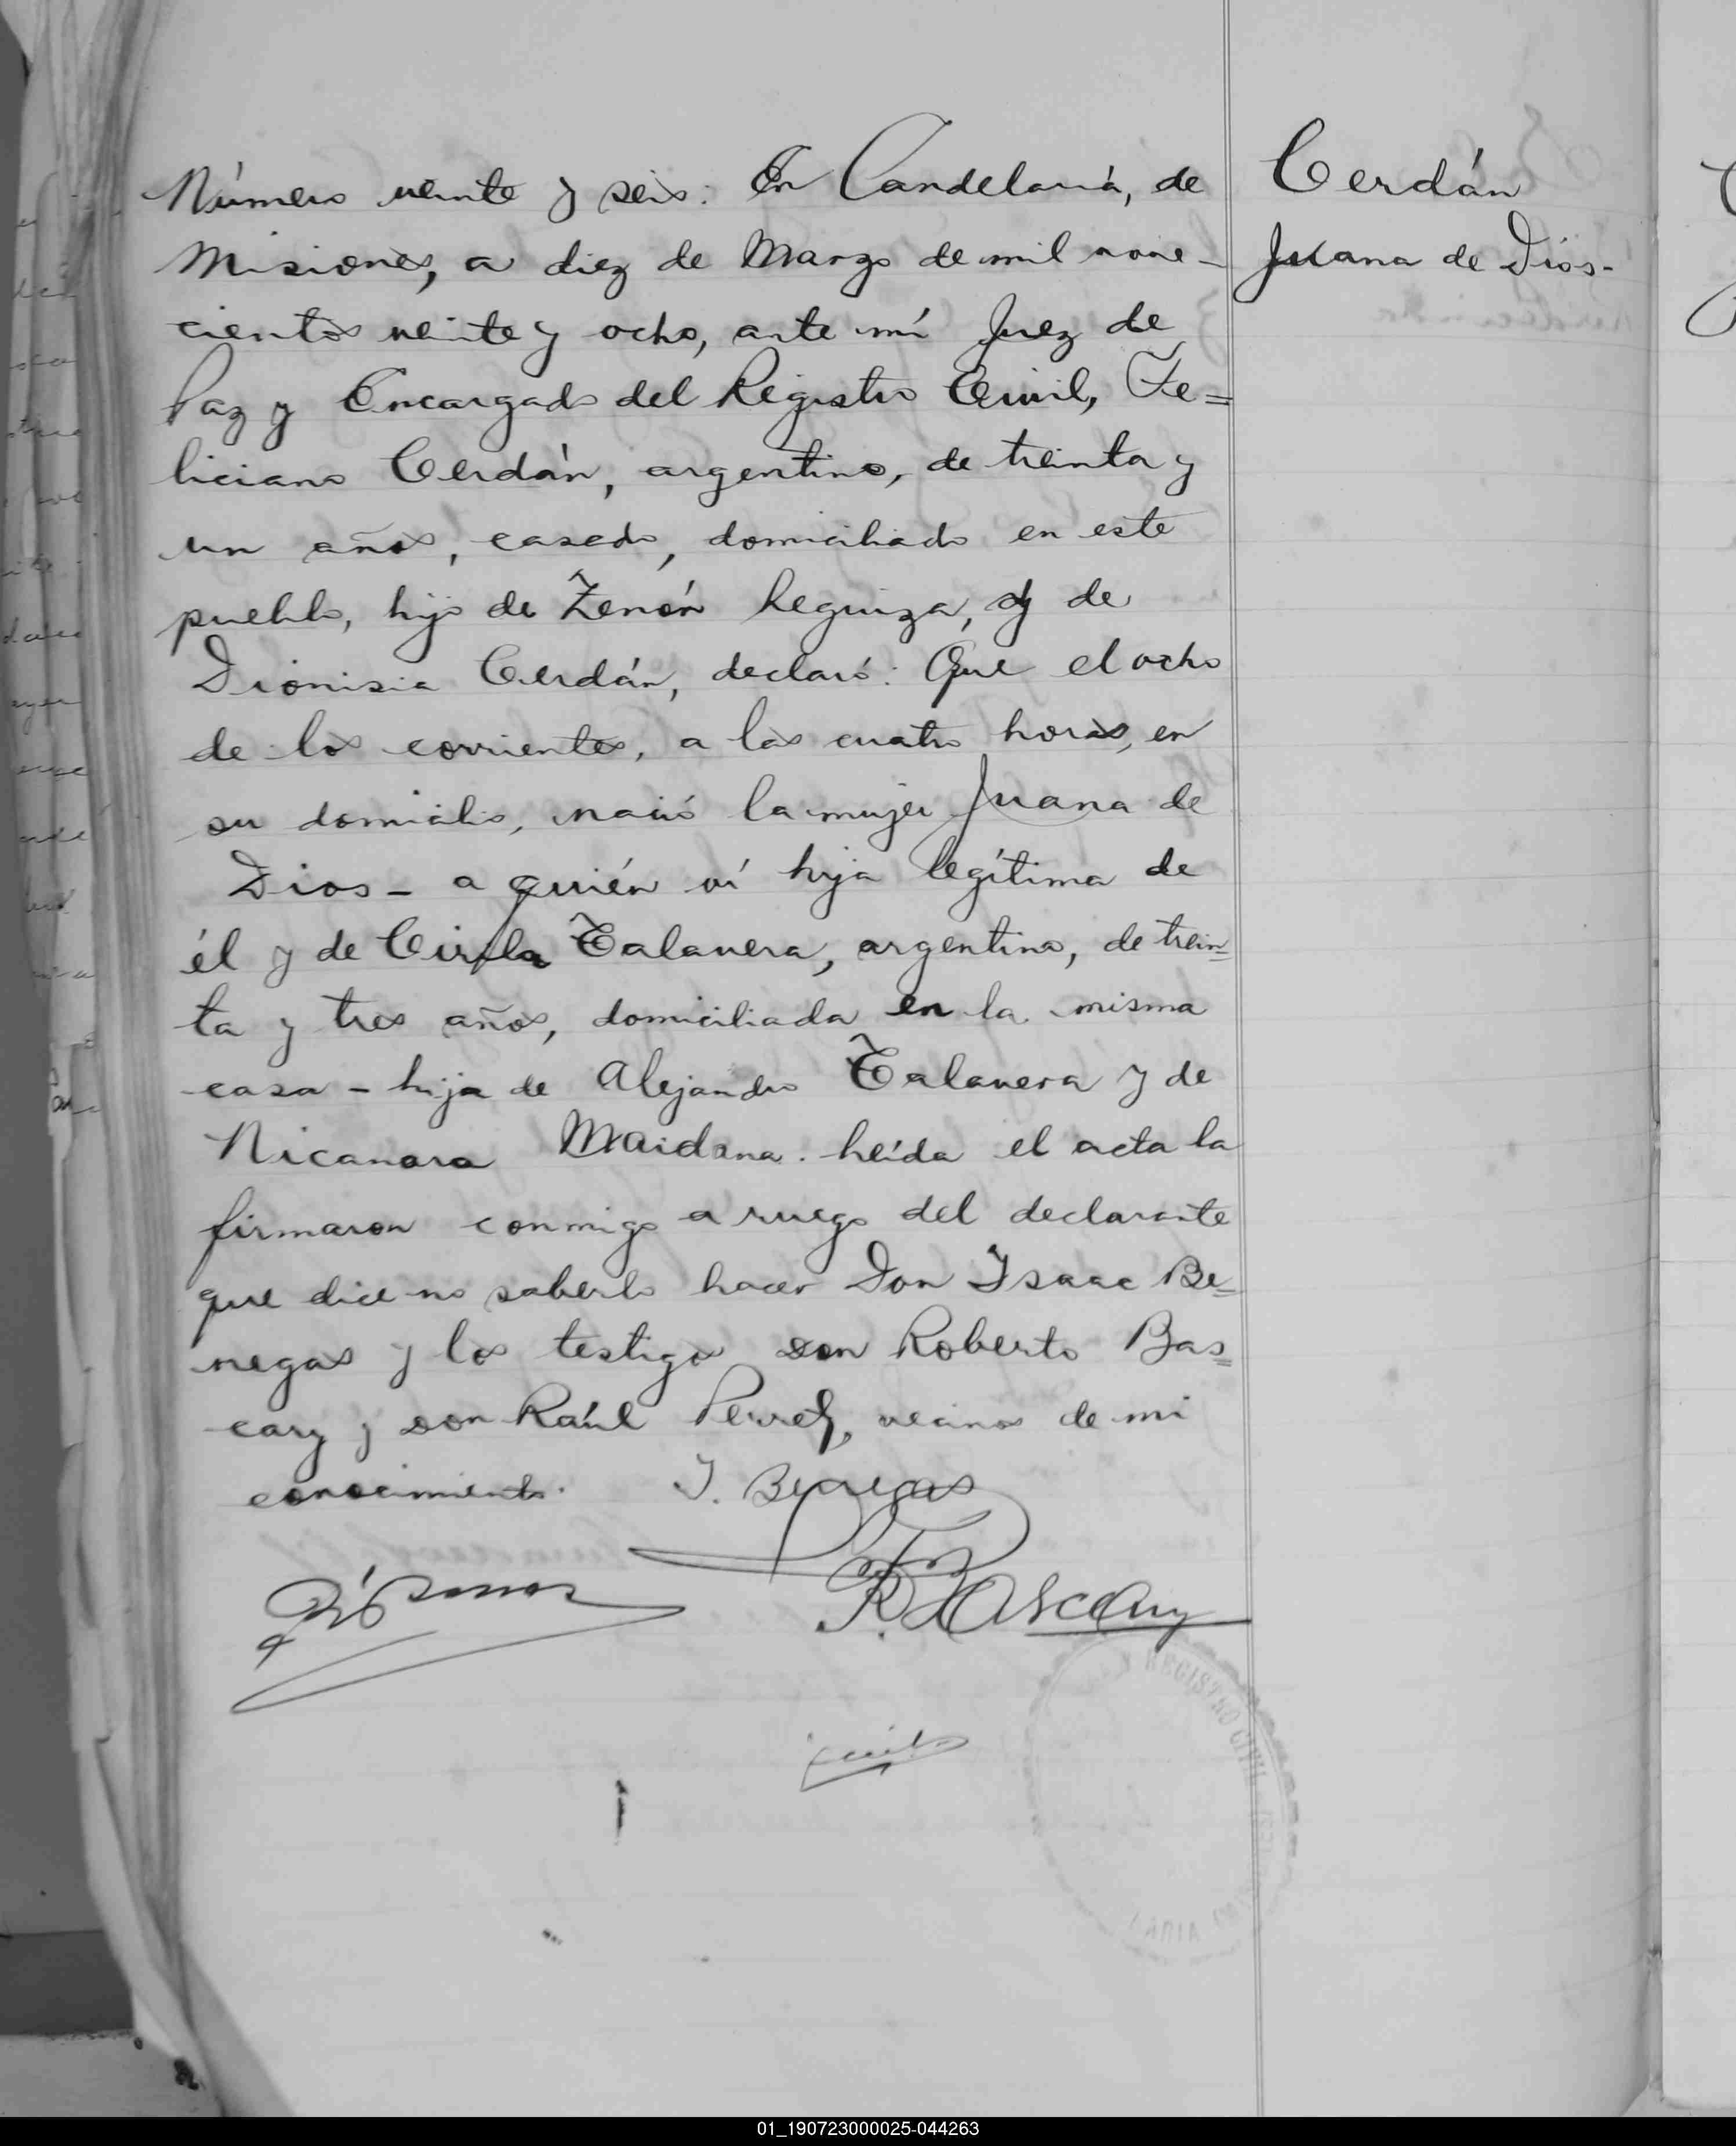 Número veinte y seis: En Candelaria, de
Misiones, a diez de Marzo de mil nove-
cientos veinte y ocho, ante mí Juez de
Paz y Encargado del Registro Civil, Fe=
liciano Cerdán, argentino, de treinta y
un años, casado, domiciliado en este
pueblo, hijo de Zenón Reguiza, y de
Dionisia Cerdán, declaró: Que el ocho
de los corrientes, a las cuatro horas, en
su domicilio, nació la mujer Juana de
Dios - a quién ví hija legítima de
él y de Cirila Talavera, argentina, de trein=
ta y tres años, domiciliada en la misma
casa - hija de Alejandro Talavera y de
Nicanora Maidana. Leída el acta la
firmaron conmigo a ruego del declarante
que dice no saberlo hacer Don Isaac Be=
negas y los testigos don Roberto Bas=
cary y don Raúl Perret, vecinos de mi
conocimiento. I. Benegas
R. Bascary
Cerdán
Juana de Dios-
REGISTRO CIVIL
LARIA
01_190723000025-044263